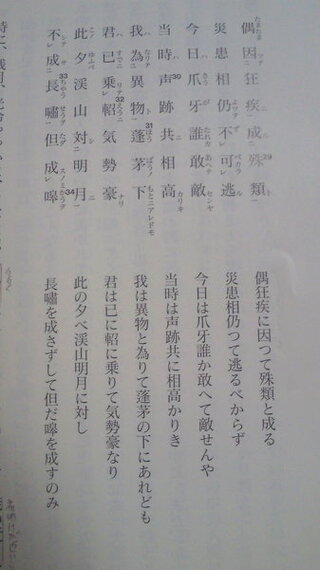 偶因狂疾成殊類29
災患相仍不可逃
今日爪牙誰敢敵
当時声30跡共相高
我為異物蓬31茅下
君已乗軺32気勢豪
此夕渓山対明月
不成長33嘯但成嘷34
偶狂疾に因つて殊類と成る
災患相仍つて逃るべからず
今日は爪牙誰か敢へて敵せんや
当時は声跡共に相高かりき
我は異物と為りて蓬茅の下にあれども
君は已に軺に乗りて気勢豪なり
此の夕べ渓山明月に対し
長嘯を成さずして但だ嘷を成すのみ
時に、残月、光